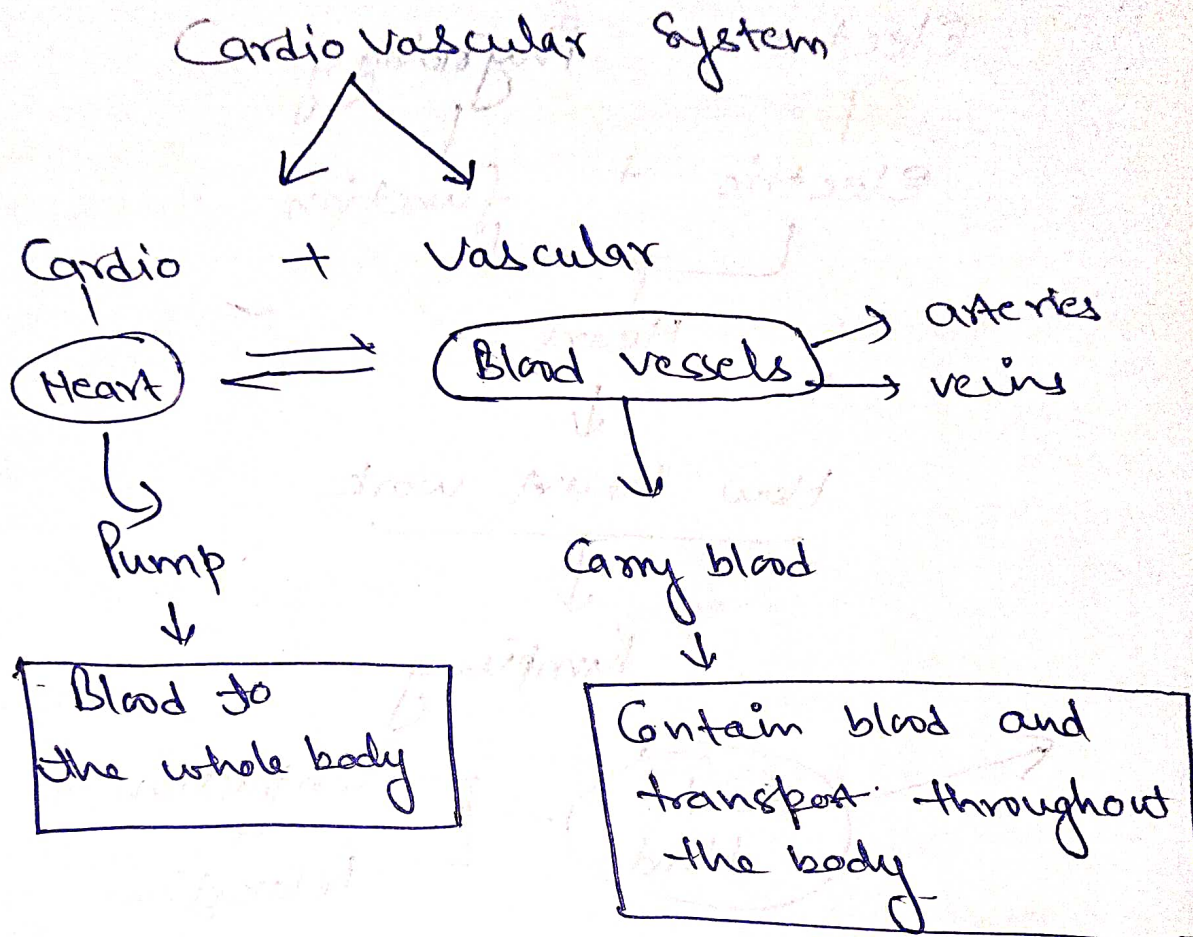 Cardio Vascular System
Cardio + Vascular
Heart
Blood vessels
arteries
veins
Pump
Carry blood
Blood to
the whole body
Contain blood and
transport throughout
the body